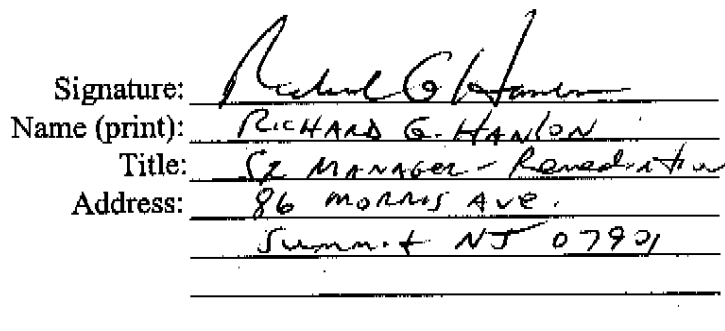 Signature: Richard G Hanlon
Name (print): RICHARD G. HANLON
Title: SR MANAGER - Remediation
Address: 86 MORRIS AVE.
Summit NJ 07901